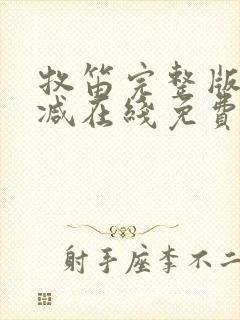 牧笛完整版
减在綫免費
射手座李不二